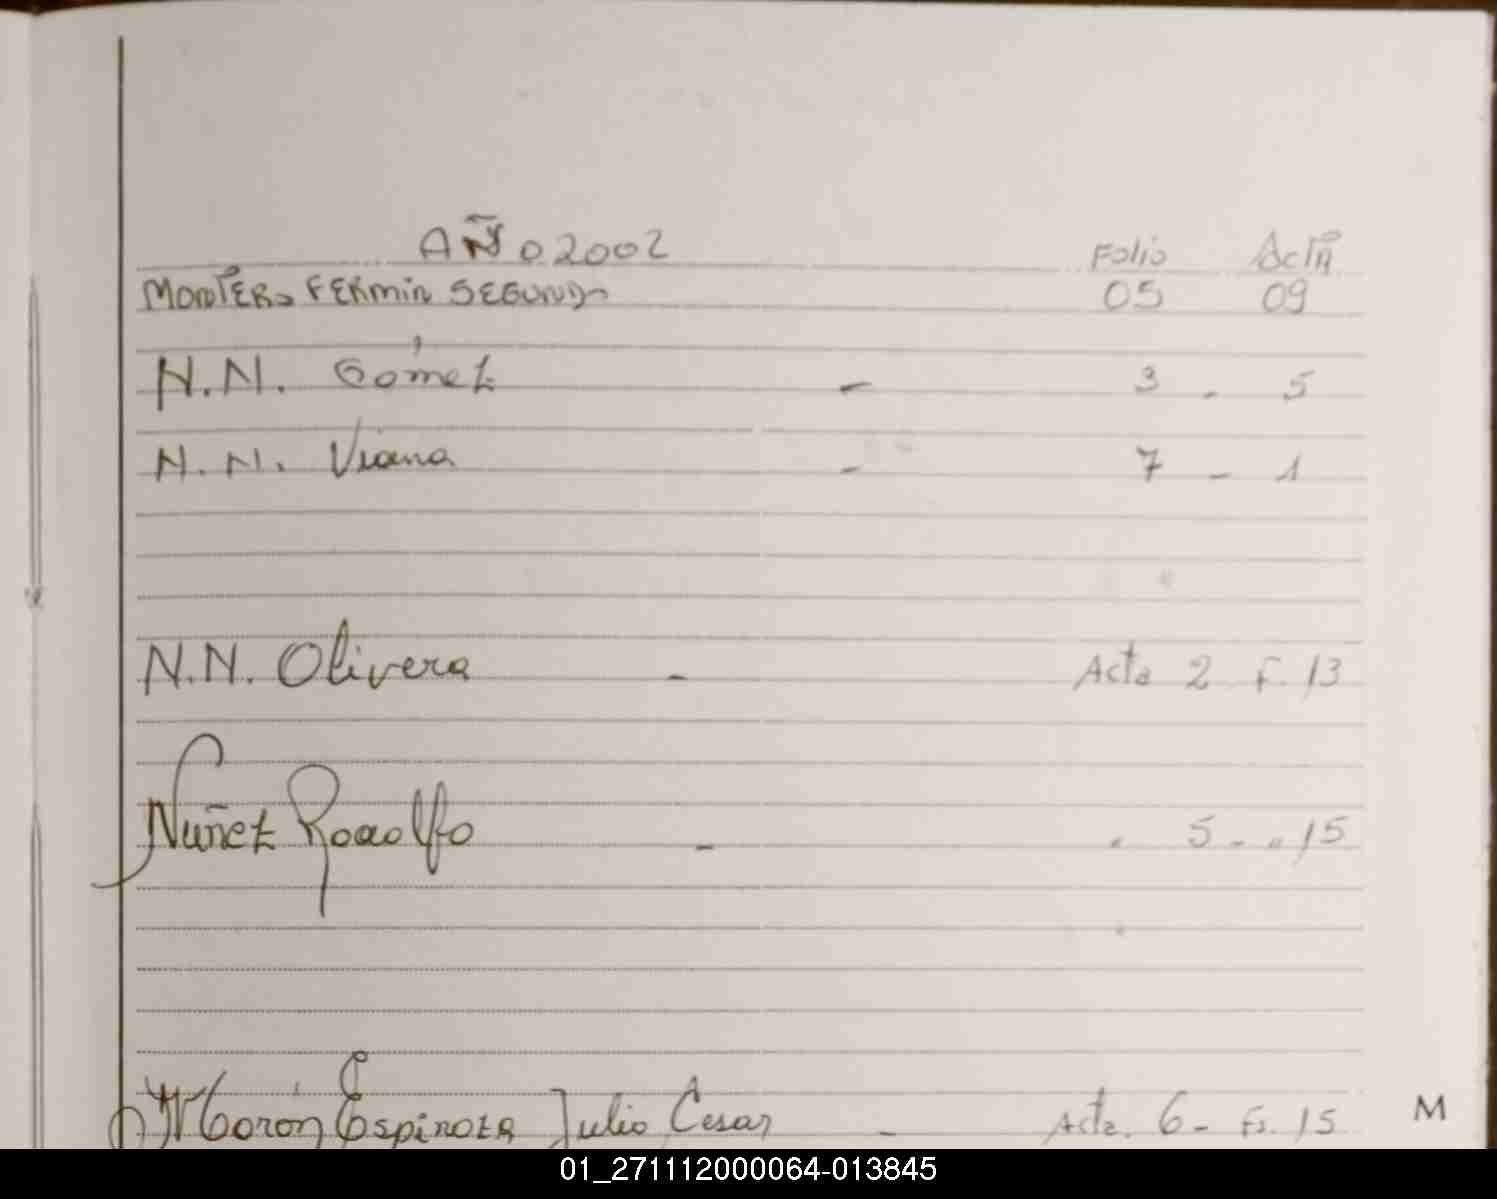 AÑO 2002 Folio Acta
MONTERO FERMIN SEGUNDO 05 09
N.N. Gómez - 3 - 5
N.N. Viana - 7 - 1
N.N. Olivera - Acta 2 F. 13
Nuñez Rodolfo - " 5 - " 15
Morón Espinoza Julio Cesar - Acta. 6 - Fs. 15 M
01_271112000064-013845